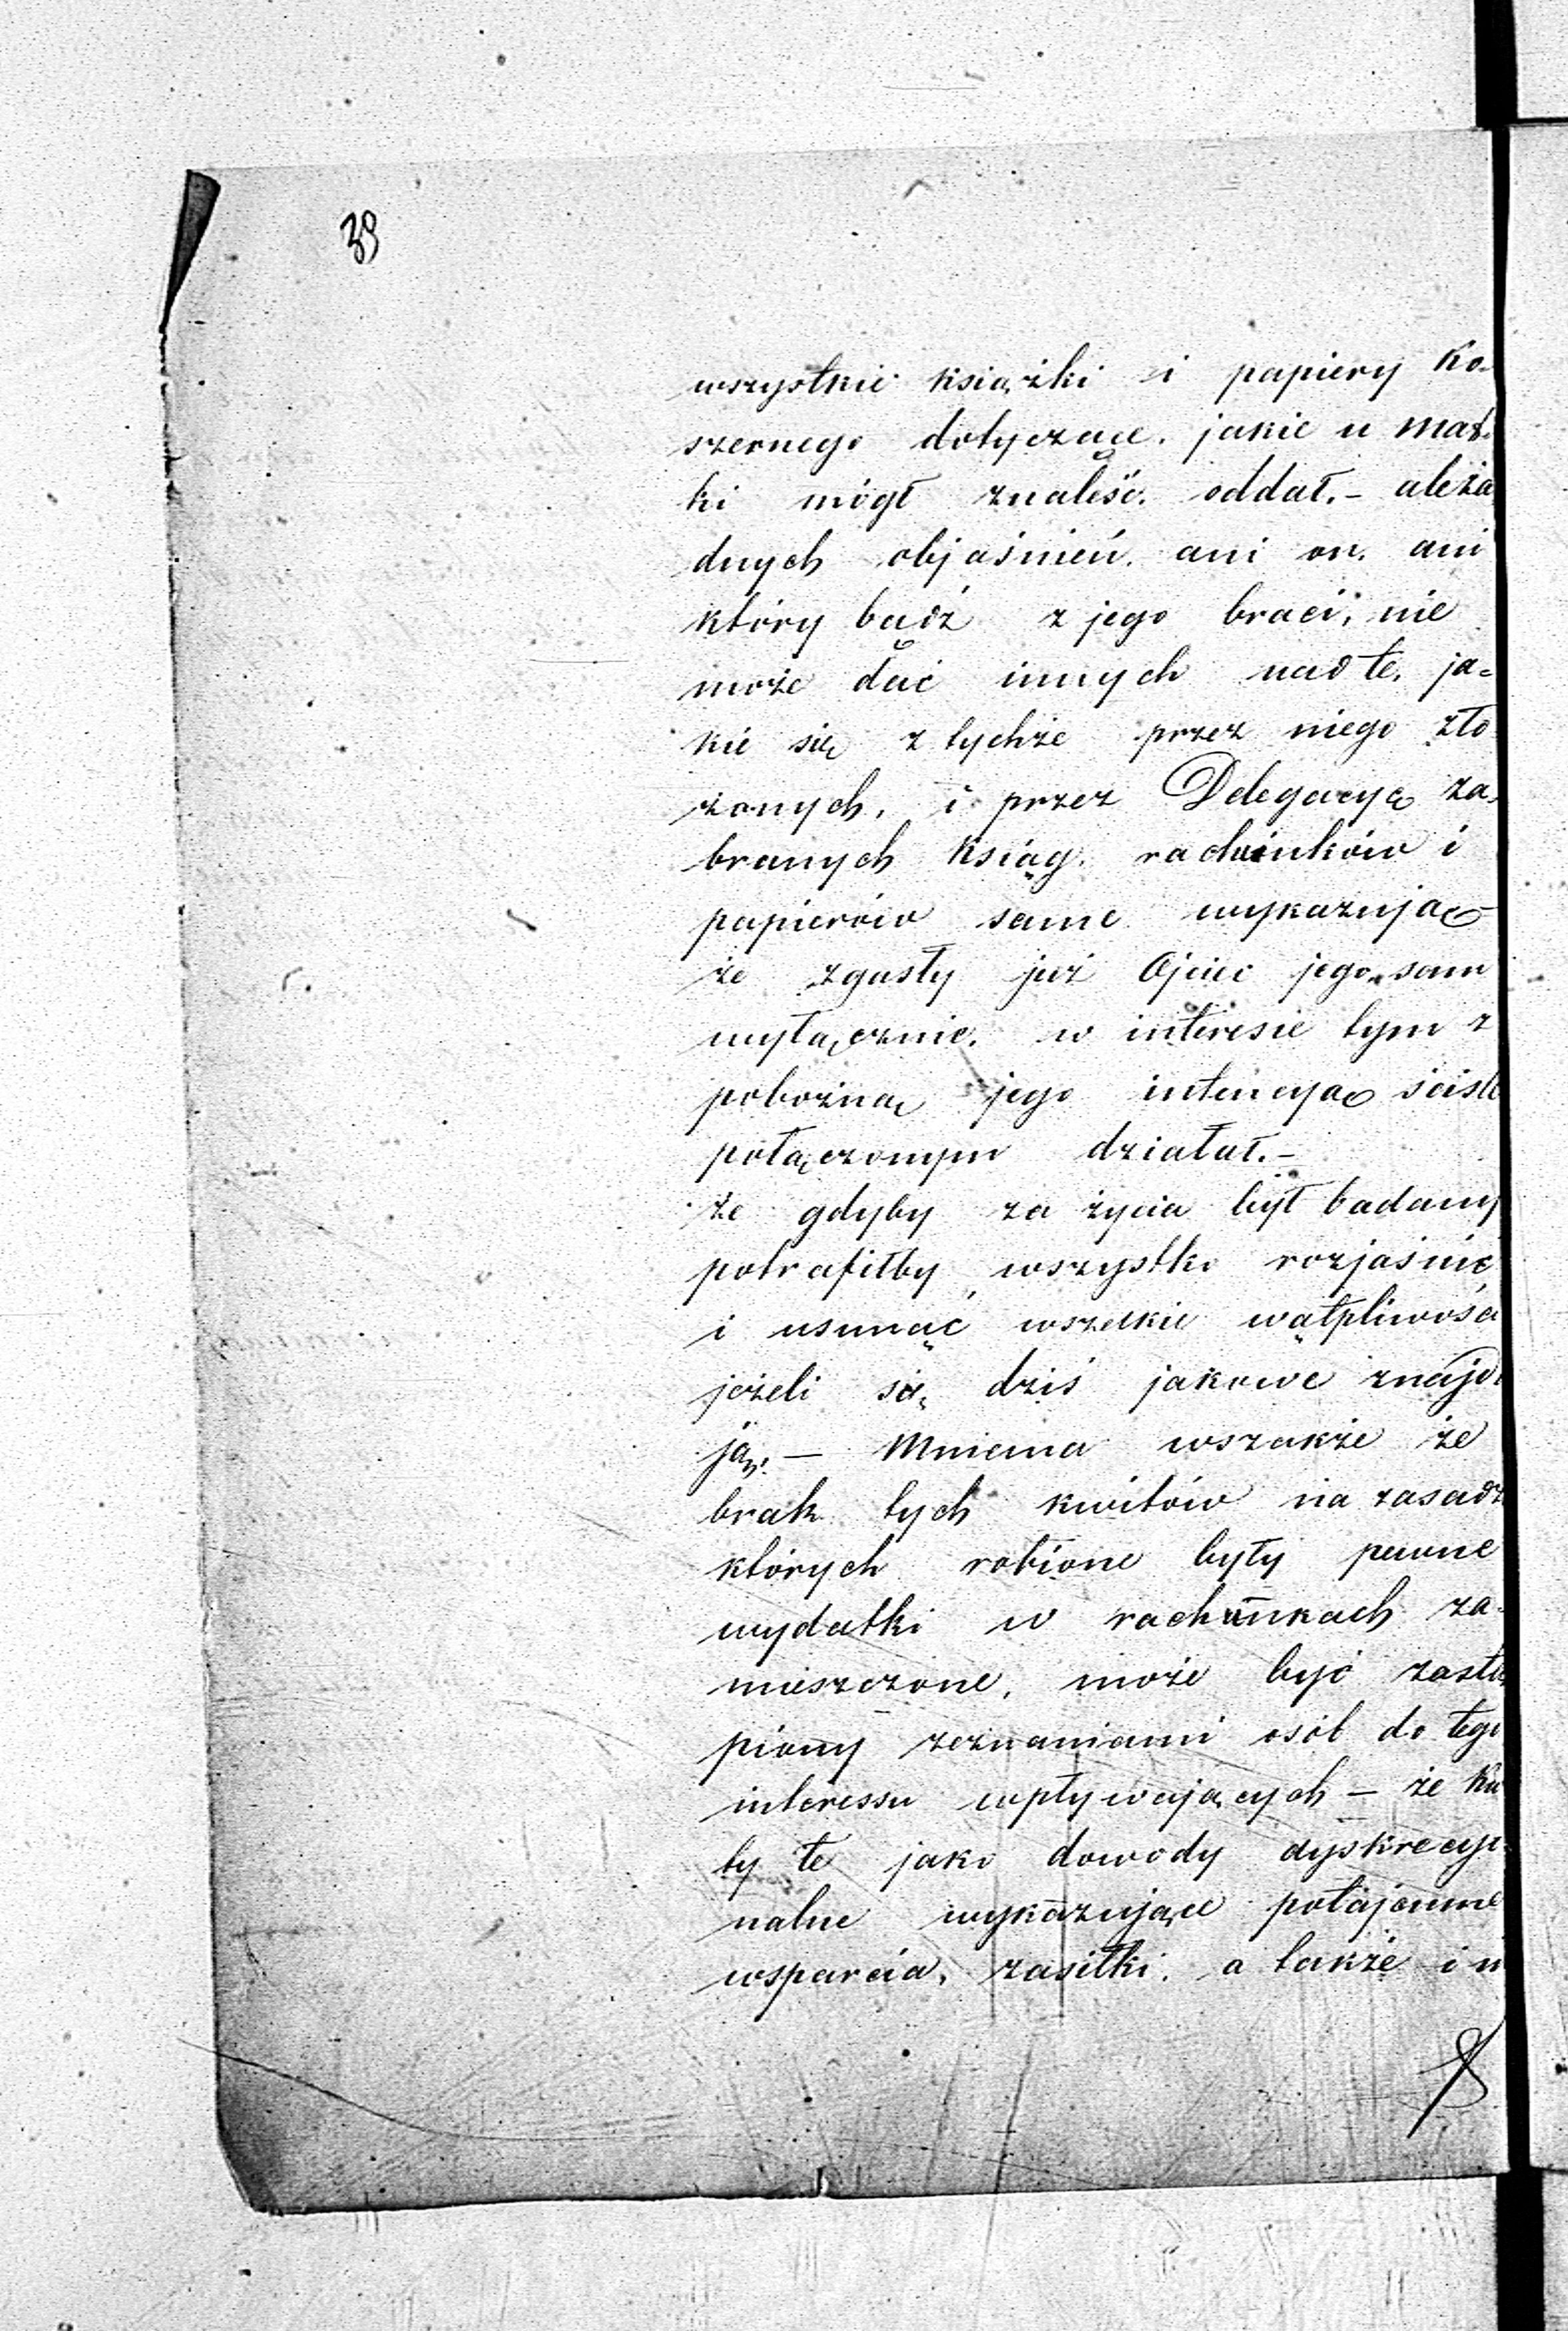 39
wszystkie książki i papiery Ko-
szernego dotyczące, jakie u mat-
ki mógł znaleść, oddał. – ale ża
dnych objaśnień, ani on, ani
który bądź z jego braci, nie
może dać innych nad te, ja=
kie się z tychże przez niego zło
żonych, i przez Delegacyę za-
branych ksiąg, rachunków i
papierów same wykazują
że zgasły już Ojciec jego sam
wyłącznie, w interesie tym z
pobożną jego intencyą ściśle
połączonym działał. –
że gdyby za życia był badany
potrafiłby wszystko rozjaśnić
i usunąć wszelkie wątpliwości
jeżeli się dziś jakowe znajd
ją. – Mniema wszakże że
brak tych kwitów na zasadz
których robione były pewne
wydatki w rachunkach za-
mieszczone, może być zastą
piony zeznaniami osób do tego
interessu wpływających – że kw
ty te jako dowody dyskrecyo-
nalne wykazujące potajemne
wsparcia, zasiłki, a także i